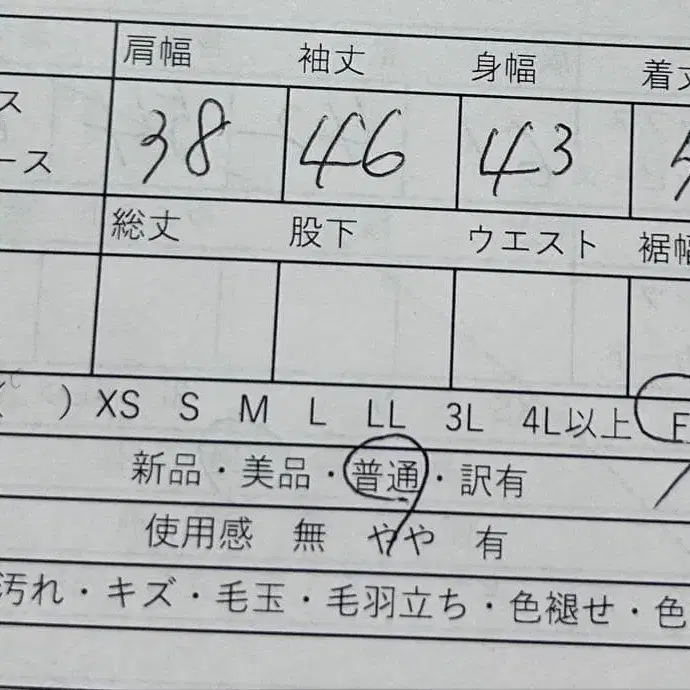 肩幅 袖丈 身幅 着丈
ス
ース
38 46 43
総丈 股下 ウエスト 裾幅
( ) XS S M L LL 3L 4L以上 F
新品・美品・普通・訳有
使用感 無 やや 有
汚れ・キズ・毛玉・毛羽立ち・色褪せ・色